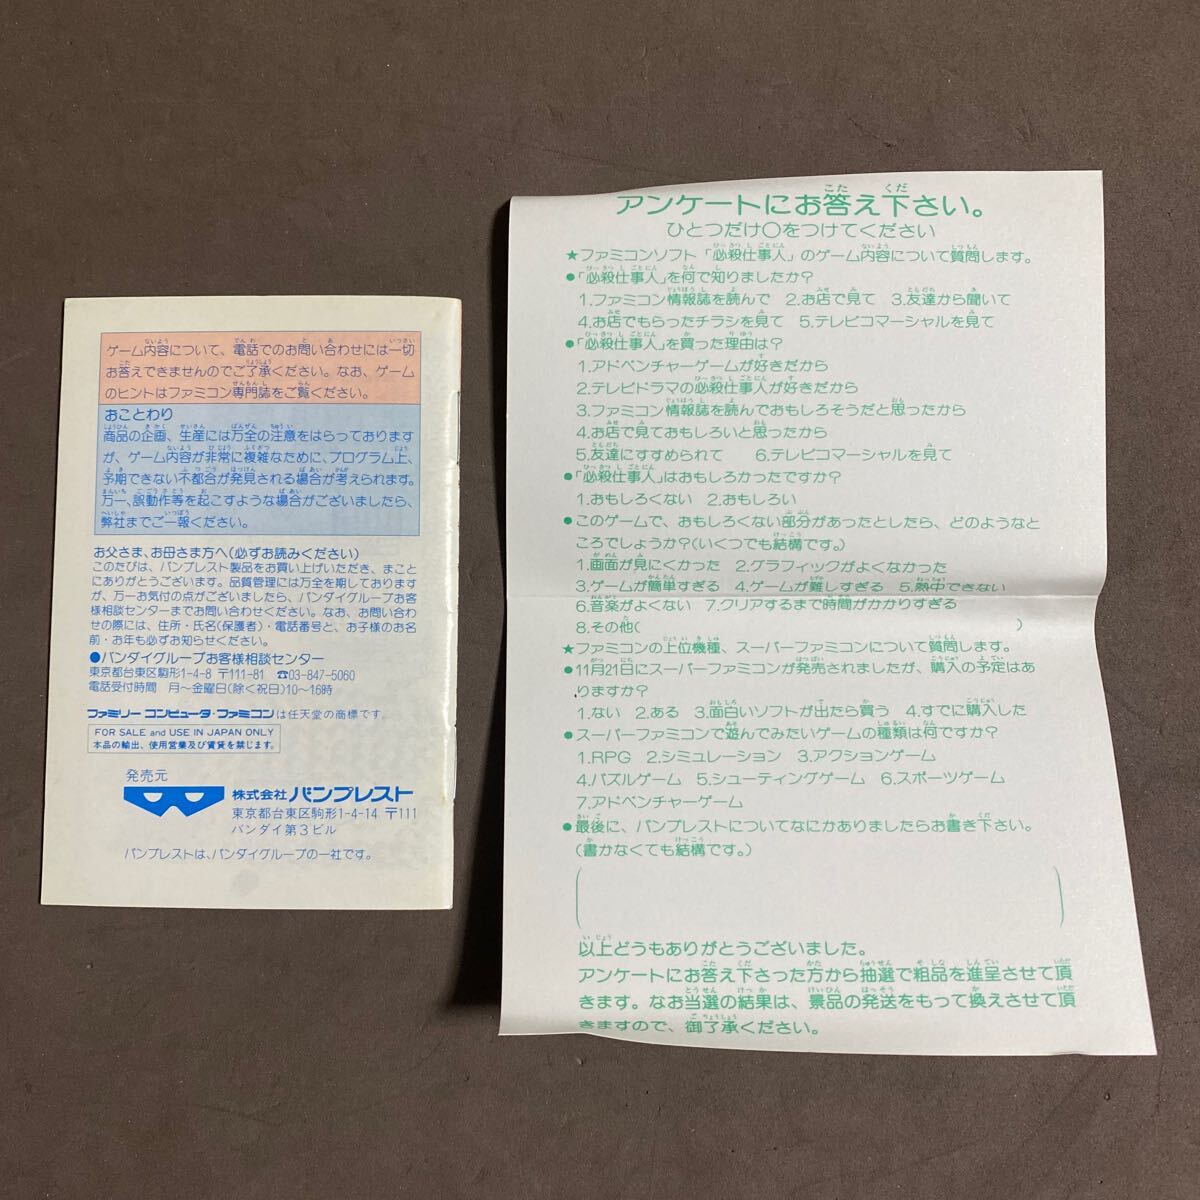 ゲーム内容について、電話でのお問い合わせには一切
お答えできませんのでご了承ください。なお、ゲーム
のヒントはファミコン専門誌をご覧ください。
おことわり
商品の企画、生産には万全の注意をはらっております
が、ゲーム内容が非常に複雑なために、プログラム上、
予期できない不都合が発見される場合が考えられます。
万一、誤動作等を起こすような場合がございましたら、
弊社までご一報ください。
お父さま、お母さま方へ(必ずお読みください)
このたびは、バンプレスト製品をお買い上げいただき、まこと
にありがとうございます。品質管理には万全を期しております
が、万一お気付の点がございましたら、バンダイグループお客
様相談センターまでお問い合わせください。なお、お問い合わ
せの際には、住所・氏名(保護者)・電話番号と、お子様のお名
前・お年も必ずお知らせください。
●バンダイグループお客様相談センター
東京都台東区駒形1-4-8 〒111-81 ☎03-847-5060
電話受付時間 月〜金曜日(除く祝日)10〜16時
ファミリーコンピュータ・ファミコンは任天堂の商標です。
FOR SALE and USE IN JAPAN ONLY
本品の輸出、使用営業及び賃貸を禁じます。
発売元
株式会社 バンプレスト
東京都台東区駒形1-4-14 〒111
バンダイ第3ビル
バンプレストは、バンダイグループの一社です。
アンケートにお答え下さい。
ひとつだけ○をつけてください
★ファミコンソフト「必殺仕事人」のゲーム内容について質問します。
●「必殺仕事人」を何で知りましたか?
1.ファミコン情報誌を読んで 2.お店で見て 3.友達から聞いて
4.お店でもらったチラシを見て 5.テレビコマーシャルを見て
●「必殺仕事人」を買った理由は?
1.アドベンチャーゲームが好きだから
2.テレビドラマの必殺仕事人が好きだから
3.ファミコン情報誌を読んでおもしろそうだと思ったから
4.お店で見ておもしろいと思ったから
5.友達にすすめられて 6.テレビコマーシャルを見て
●「必殺仕事人」はおもしろかったですか?
1.おもしろくない 2.おもしろい
●このゲームで、おもしろくない部分があったとしたら、どのようなと
ころでしょうか?(いくつでも結構です。)
1.画面が見にくかった 2.グラフィックがよくなかった
3.ゲームが簡単すぎる 4.ゲームが難しすぎる 5.熱中できない
6.音楽がよくない 7.クリアするまで時間がかかりすぎる
8.その他( )
★ファミコンの上位機種、スーパーファミコンについて質問します。
●11月21日にスーパーファミコンが発売されましたが、購入の予定はあ
りますか?
1.ない 2.ある 3.面白いソフトが出たら買う 4.すでに購入した
●スーパーファミコンで遊んでみたいゲームの種類は何ですか?
1.RPG 2.シミュレーション 3.アクションゲーム
4.パズルゲーム 5.シューティングゲーム 6.スポーツゲーム
7.アドベンチャーゲーム
●最後に、バンプレストについてなにかありましたらお書き下さい。
(書かなくても結構です。)
以上どうもありがとうございました。
アンケートにお答え下さった方から抽選で粗品を進呈させて頂
きます。なお当選の結果は、景品の発送をもって換えさせて頂
きますので、御了承ください。